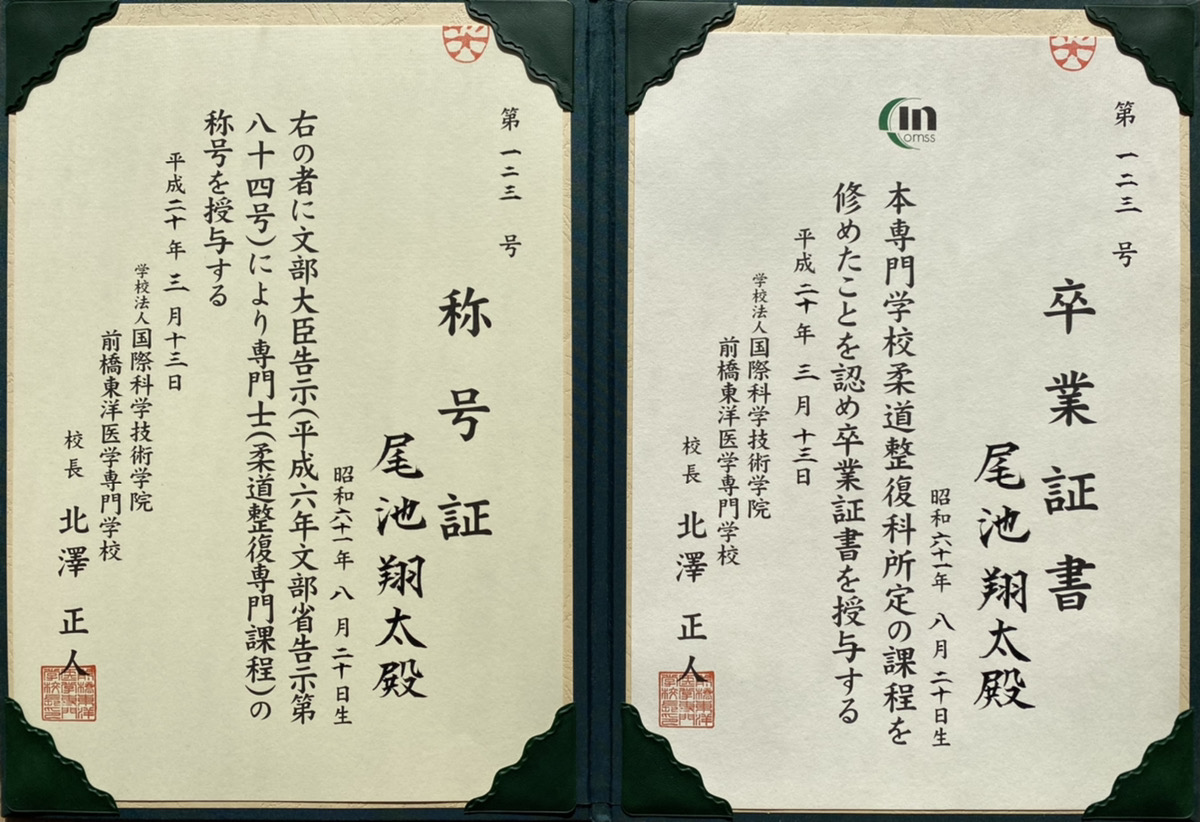 第 一二三 号
卒業証書
尾池翔太殿
昭和六十一年 八月二十日生
本専門学校柔道整復科所定の課程を
修めたことを認め卒業証書を授与する
平成二十年 三月十三日
学校法人国際科学技術学院
前橋東洋医学専門学校
校長 北澤正人
in
omss
第 一二三 号
称号証
尾池翔太殿
昭和六十一年 八月二十日生
右の者に文部大臣告示(平成六年文部省告示第
八十四号)により専門士(柔道整復専門課程)の
称号を授与する
平成二十年 三月十三日
学校法人国際科学技術学院
前橋東洋医学専門学校
校長 北澤正人